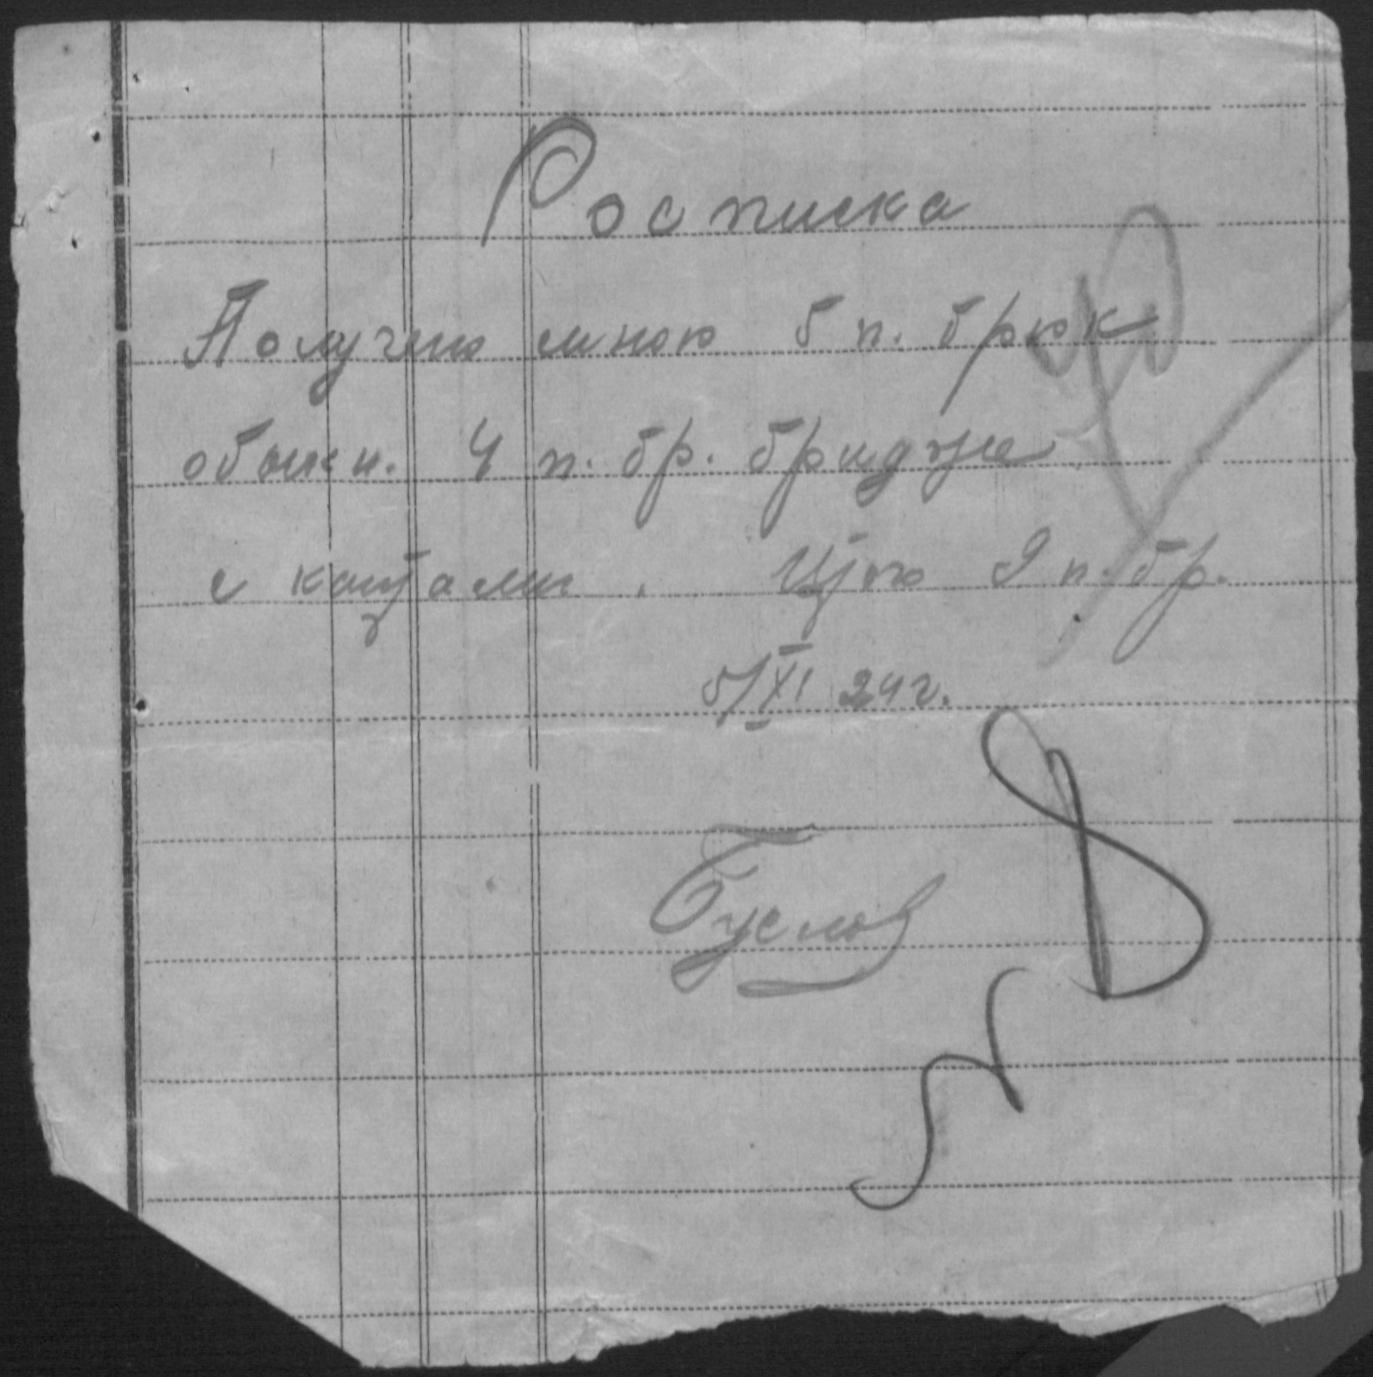 Росписка
Получено мною 5 п. брюк
обыкн. 4 п. бр. бридже
с кантами. Итого 9 п. бр.
5/XI 24 г.
Буслов